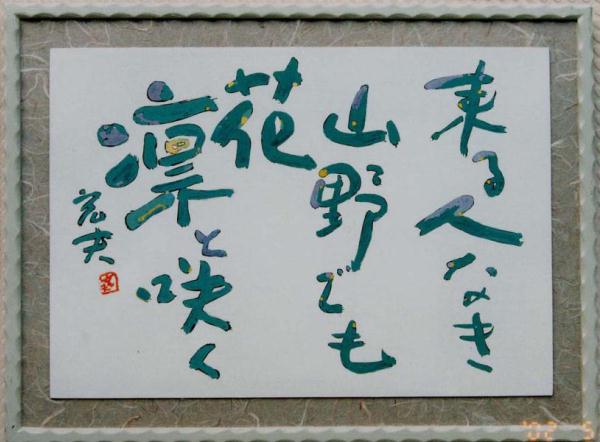 来る人なき
山野でも
花
凛と咲く
宏夫